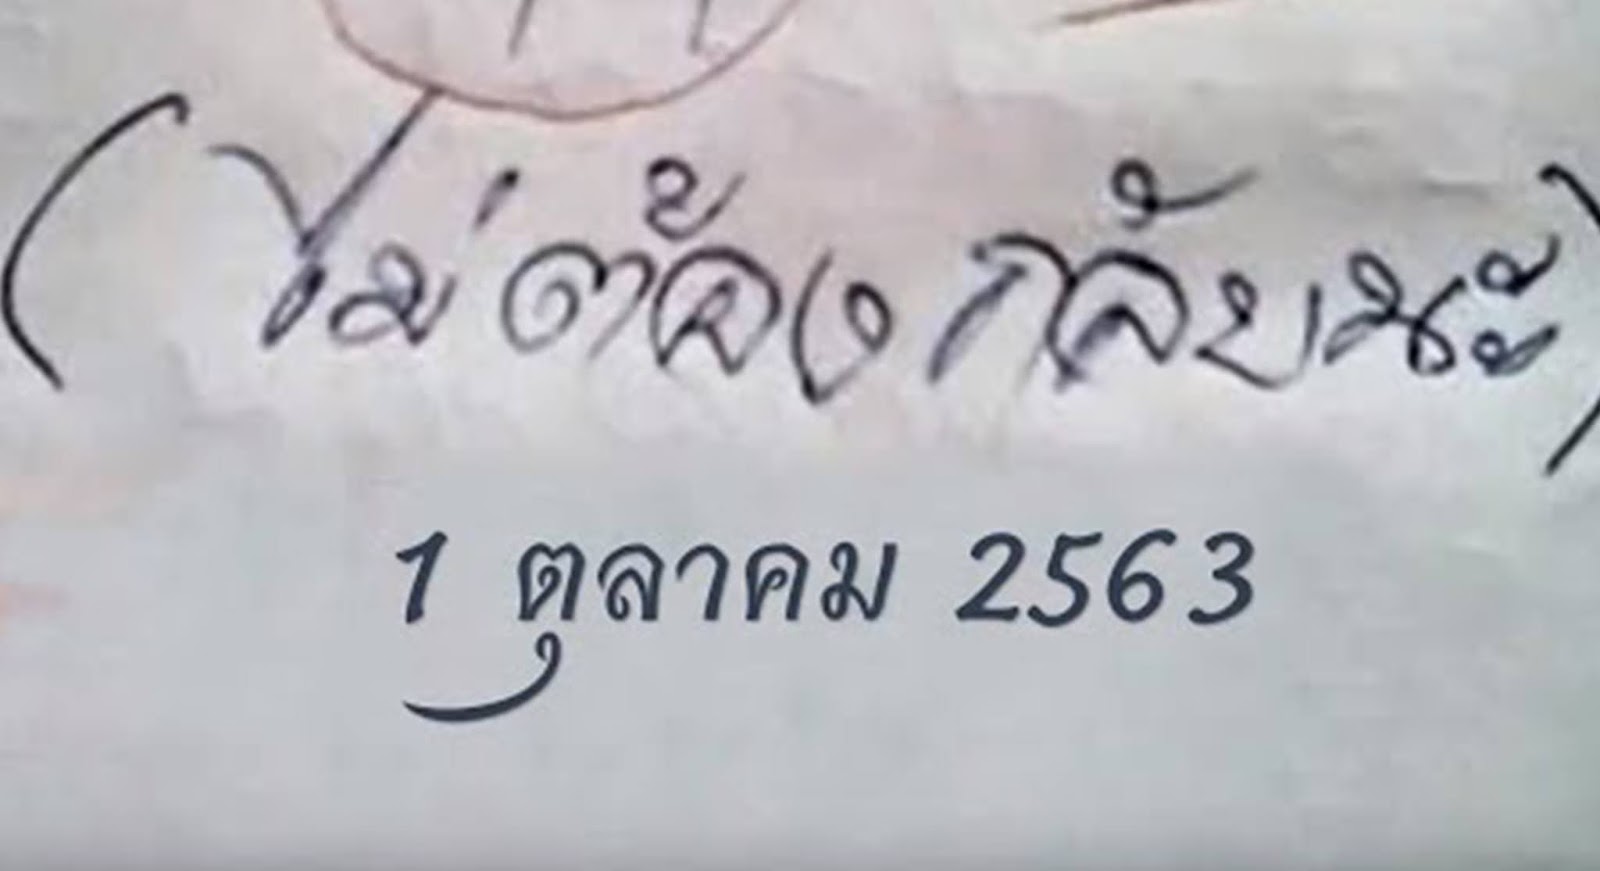 (ไม่ต้องกลับนะ)
1 ตุลาคม 2563